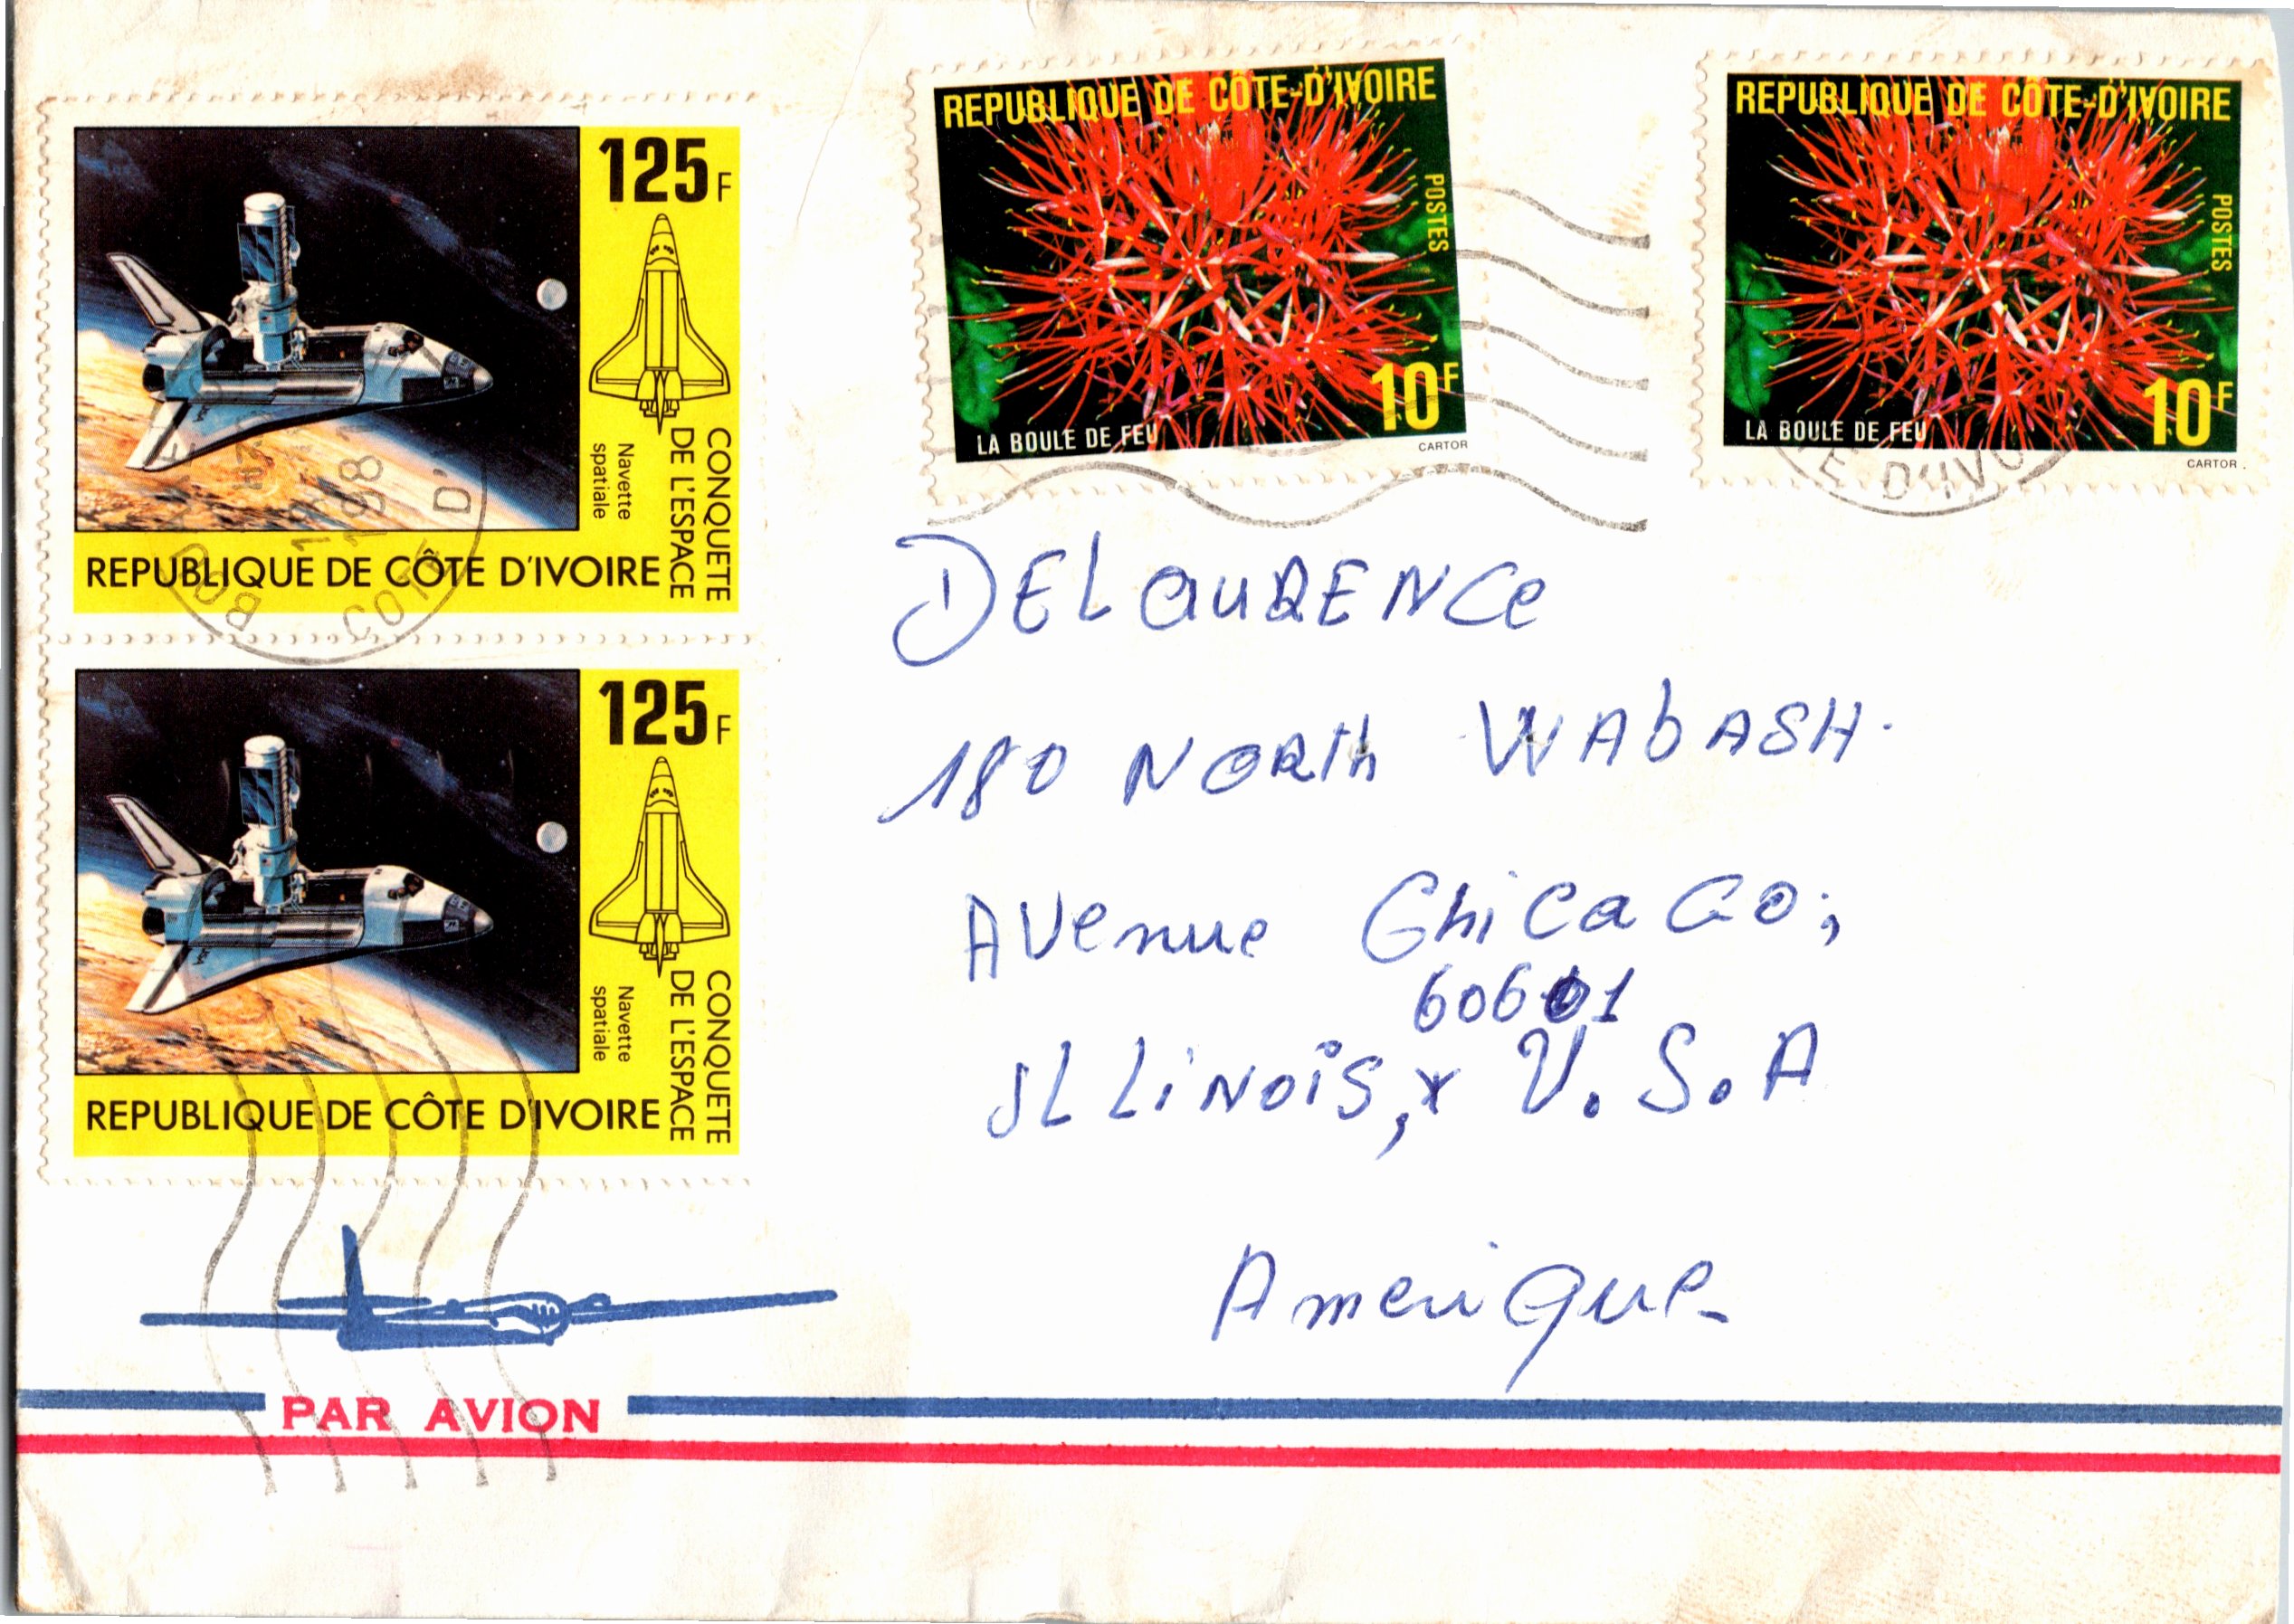 125F
CONQUETE
DE L'ESPACE
Navette
spatiale
REPUBLIQUE DE CÔTE D'IVOIRE
125F
CONQUETE
DE L'ESPACE
Navette
spatiale
REPUBLIQUE DE CÔTE D'IVOIRE
REPUBLIQUE DE CÔTE-D'IVOIRE
POSTES
10F
LA BOULE DE FEU
CARTOR
REPUBLIQUE DE CÔTE-D'IVOIRE
POSTES
10F
LA BOULE DE FEU
CARTOR.
COTE D'I
E D'IVO
DELAURENCe
180 NORTh WAbASH.
AVenue ChiCaGO;
60601
ILLiNOiS, x U.S.A
Amerique
PAR AVION